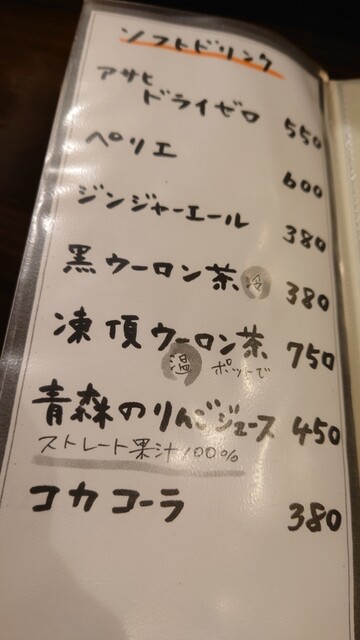 ソフトドリンク
アサヒ
ドライゼロ 550
ペリエ 600
ジンジャーエール 380
黒ウーロン茶 冷 380
凍頂ウーロン茶 750
温 ポットで
青森のりんごジュース 450
ストレート果汁100%
コカコーラ 380